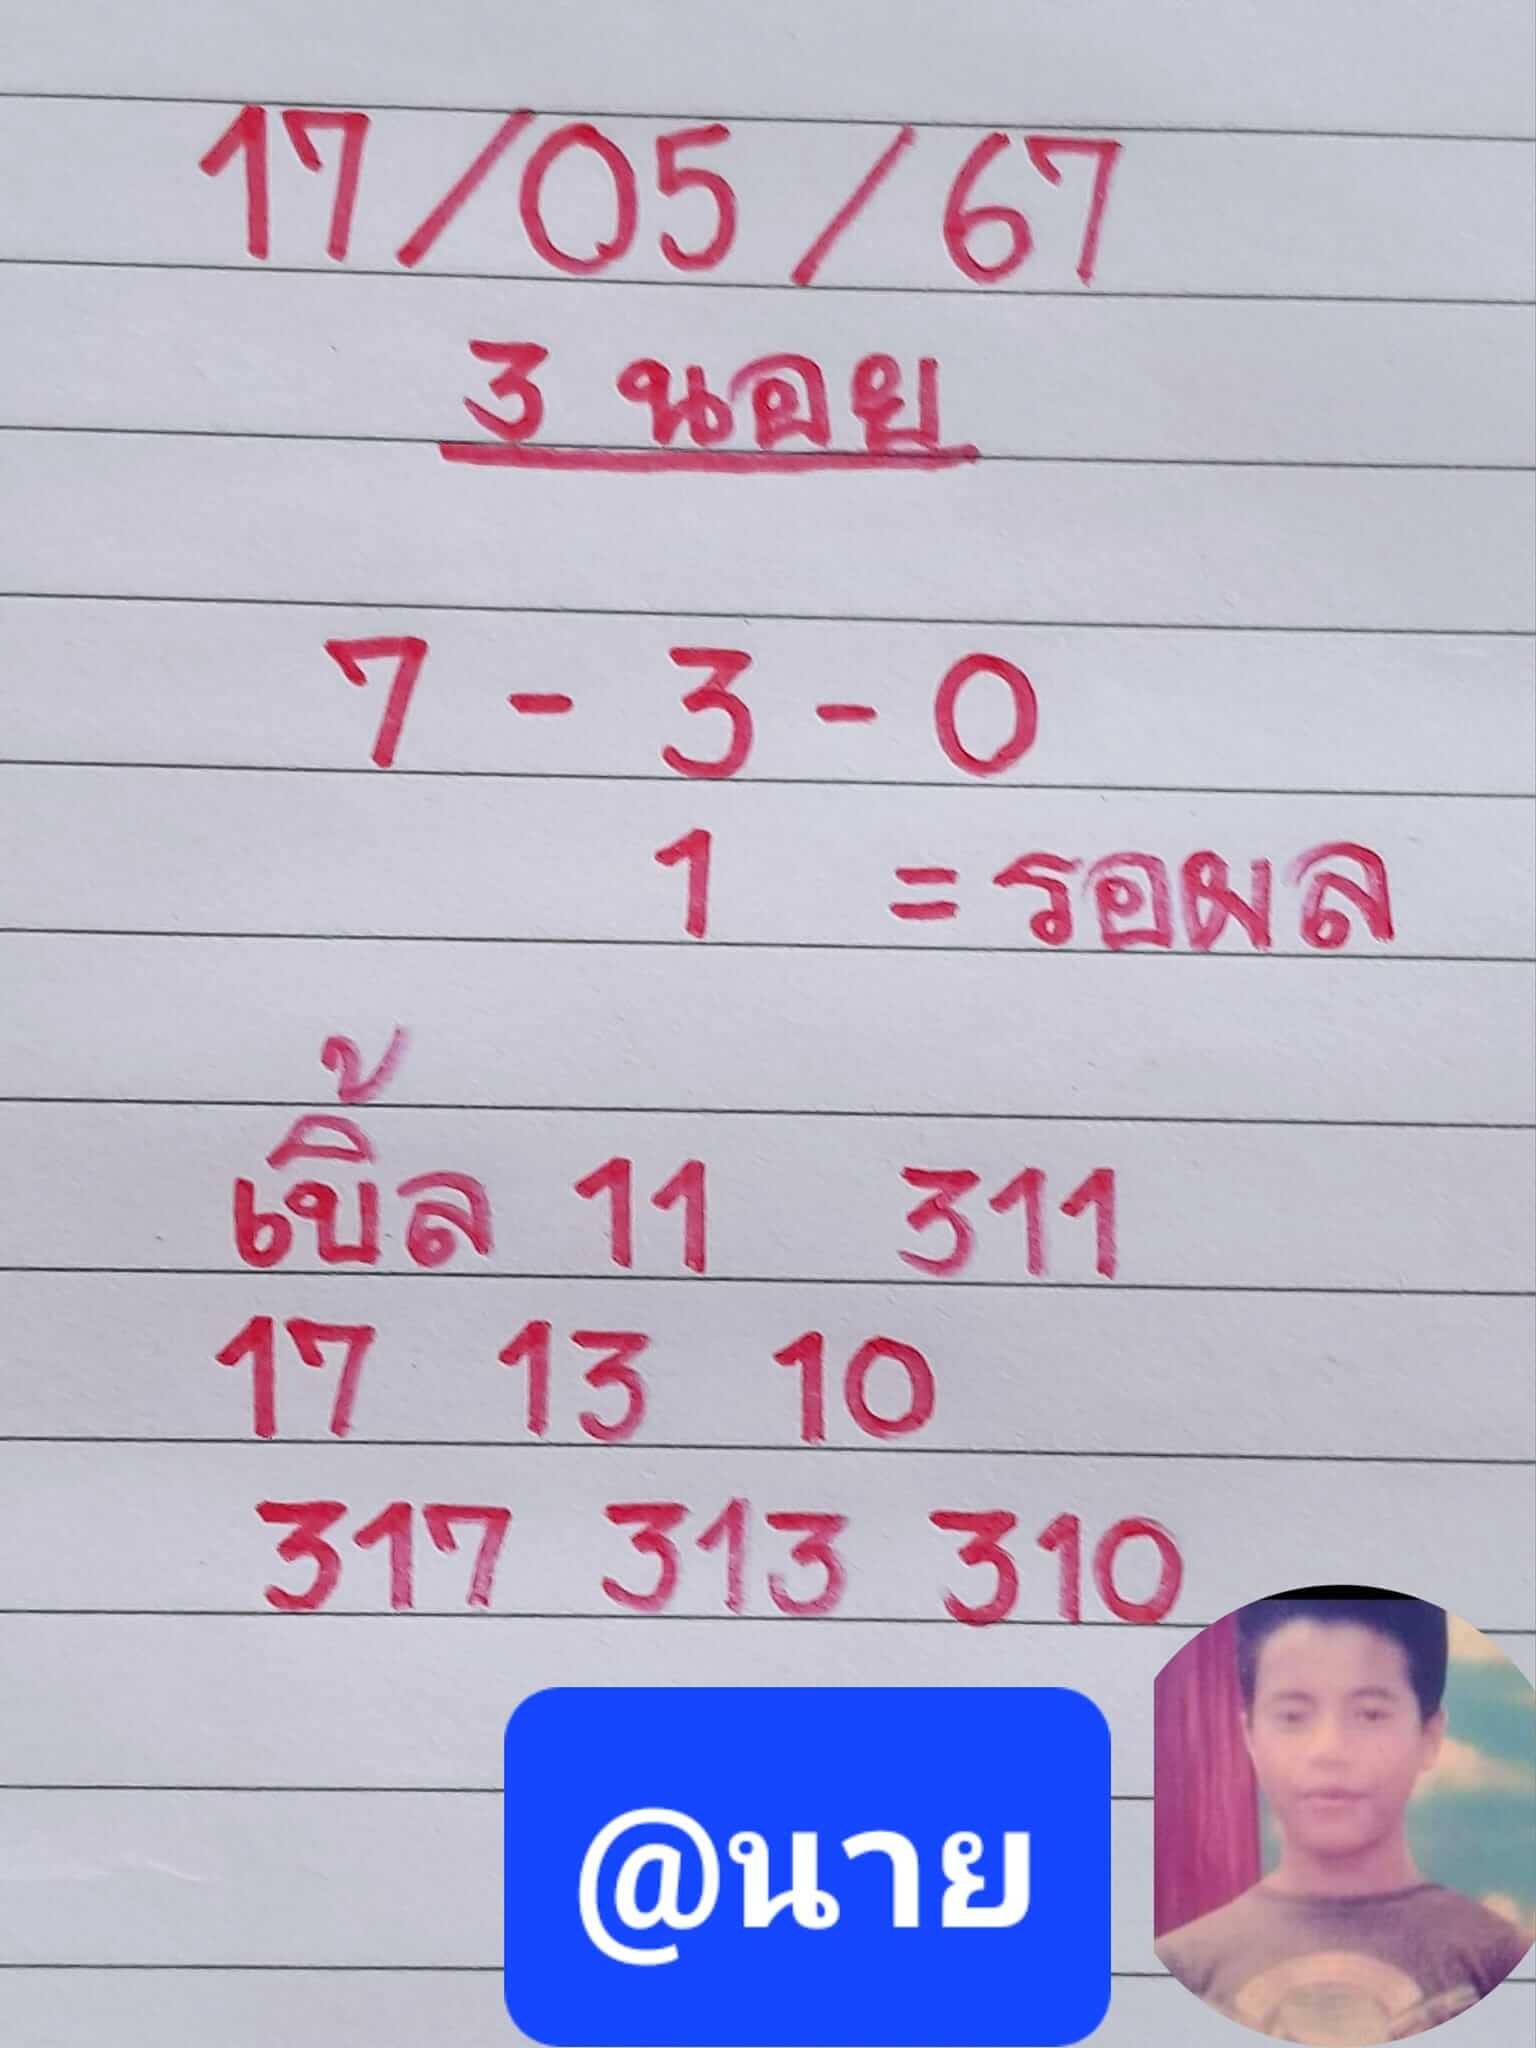 17/05/67
3 นอย
7 - 3 - 0
1 = รอผล
เบิ้ล 11 311
17 13 10
317 313 310
@นาย